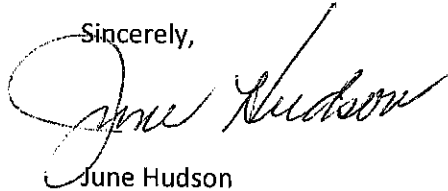 Sincerely,
June Hudson
June Hudson